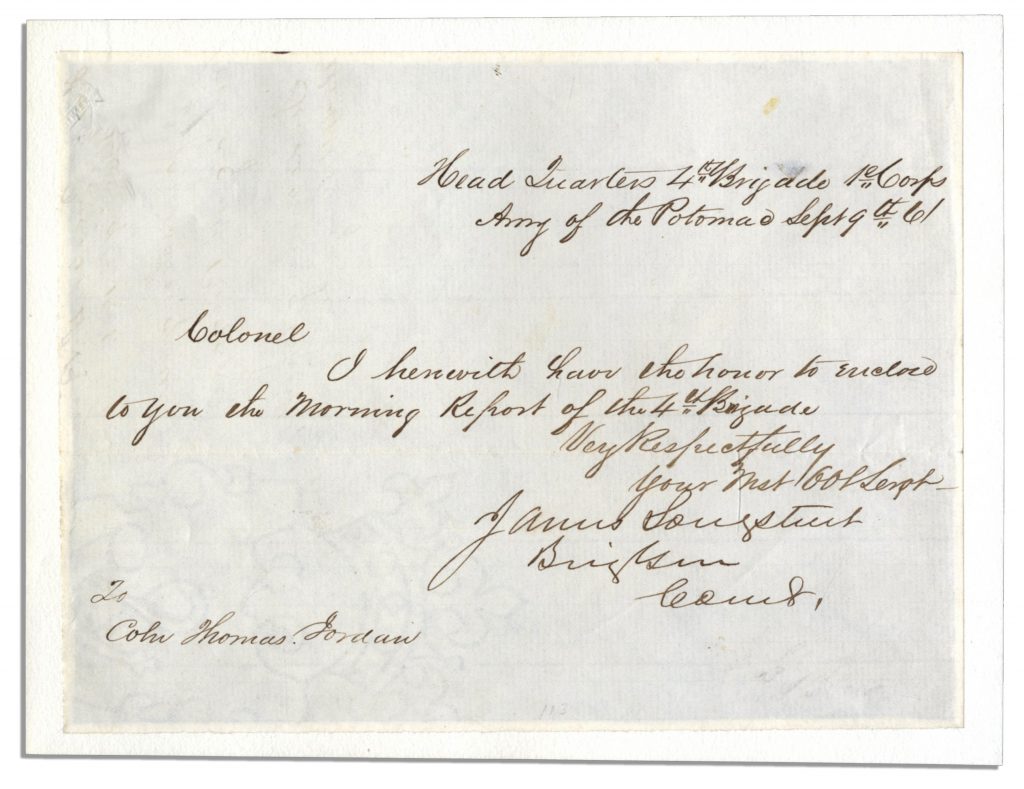 Head Quarters 4th Brigade 1st Corps
Army of the Potomac Sept 9th 61
Colonel
I herewith have the honor to enclose
to you the Morning Report of the 4th Brigade
Very Respectfully
Your Mst Obt Servt
James Longstreet
Brig Gen
Comd.
To
Coln Thomas Jordan
113